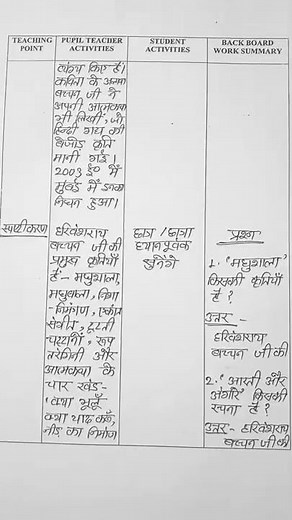 TEACHING POINT
PUPIL TEACHER ACTIVITIES
STUDENT ACTIVITIES
BACK BOARD WORK SUMMARY
किए है।
कविता के अलावा
बच्चन जी ने
अपनी आत्मकथा
भी लिखी, जो
हिन्दी गद्य की
बेजोड़ कृति
मानी गई।
2003 ई० में
मुंबई में उनका
निधन हुआ।
स्पष्टीकरण
हरिवंशराय
बच्चन जी की
प्रमुख कृतियाँ
हैं - मधुशाला,
मधुबाला, निशा
-निमंत्रण, एकांत
संगीत, टूटती
चट्टानें, रूप
तरंगिनी और
आत्मकथा के
चार खंड-
'क्या भूलूँ
क्या याद करूँ,
नीड़ का निर्माण
छात्र / छात्रा
ध्यानपूर्वक
सुनेंगे
प्रश्न
1. 'मधुशाला'
किसकी कृतियाँ
है ?
उत्तर -
हरिवंशराय
बच्चन जी की
2. 'आरती और
अंगारे' किसकी
रचना है ?
उत्तर - हरिवंशराय
बच्चन जी की